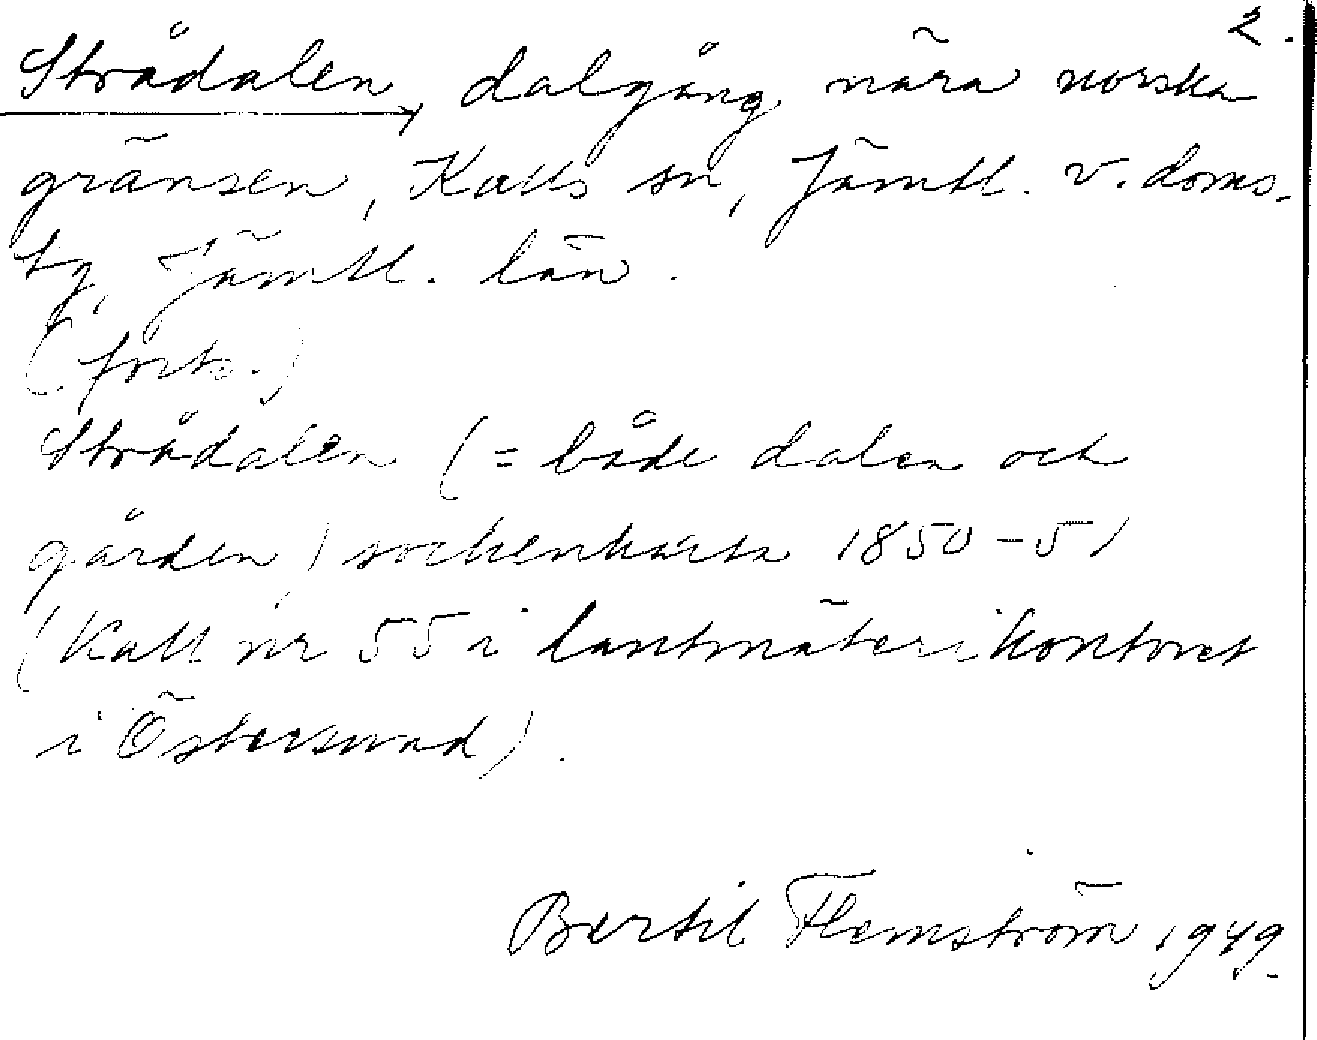 2.
Strådalen, dalgång nära norska
gränsen, Kalls sn, Jämtl. v. doms.
tg, Jämtl. län.
(forts.)
Strådalen (= både dalen och
gården) sockenkarta 1850-51
(Kall nr 55 i lantmäterikontoret
i Östersund).
Bertil Flemström 1949.